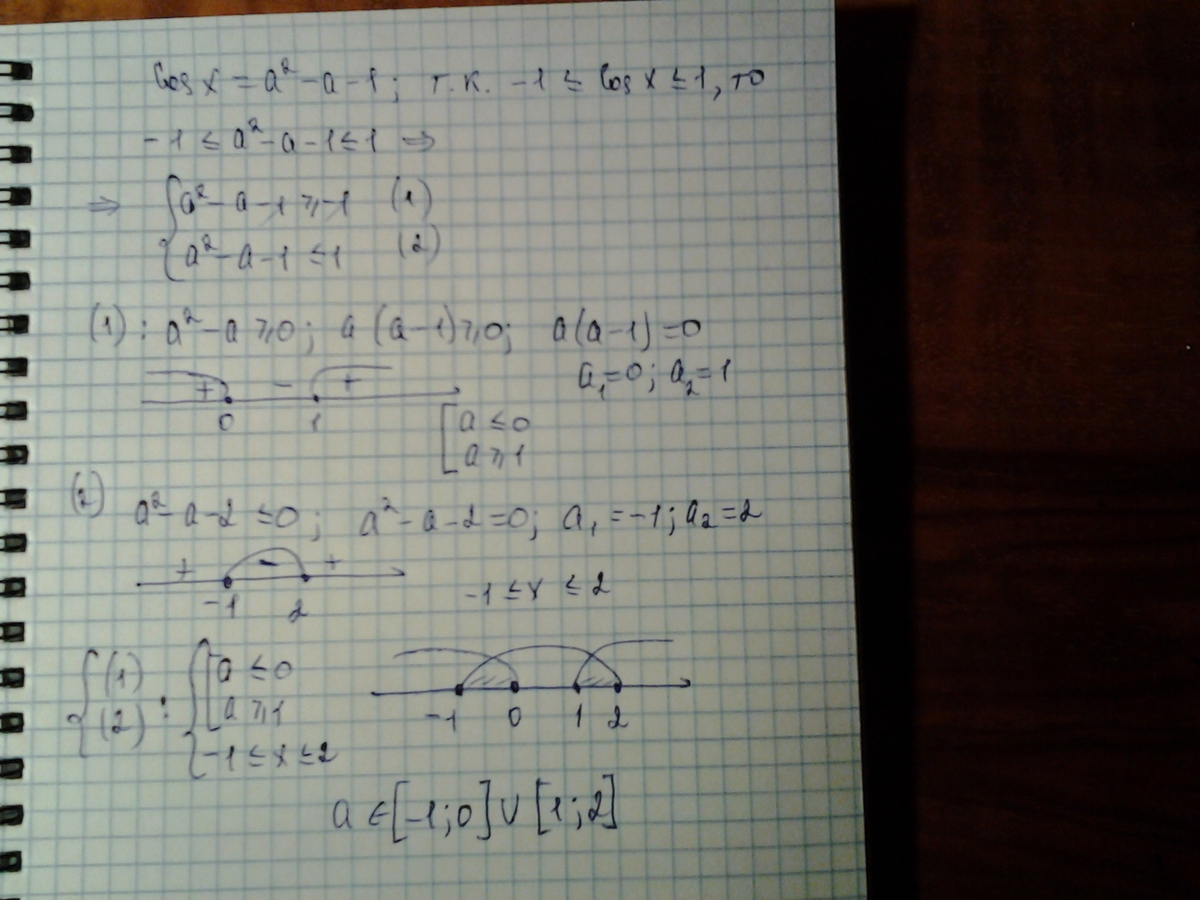 cos x = a² - a - 1; т.к. -1 ≤ cos x ≤ 1, то
-1 ≤ a² - a - 1 ≤ 1 ⇒
⇒ { a² - a - 1 ≥ -1 (1)
a² - a - 1 ≤ 1 (2)
(1): a² - a ≥ 0; a(a-1) ≥ 0; a(a-1) = 0
a₁=0; a₂=1
+ - +
0 1
[ a ≤ 0
a ≥ 1
(2) a² - a - 2 ≤ 0; a² - a - 2 = 0; a₁ = -1; a₂ = 2
+ - +
-1 2
-1 ≤ x ≤ 2
{ (1)
(2) :
{ [ a ≤ 0
a ≥ 1
-1 ≤ x ≤ 2
-1 0 1 2
a ∈ [-1; 0] ∪ [1; 2]